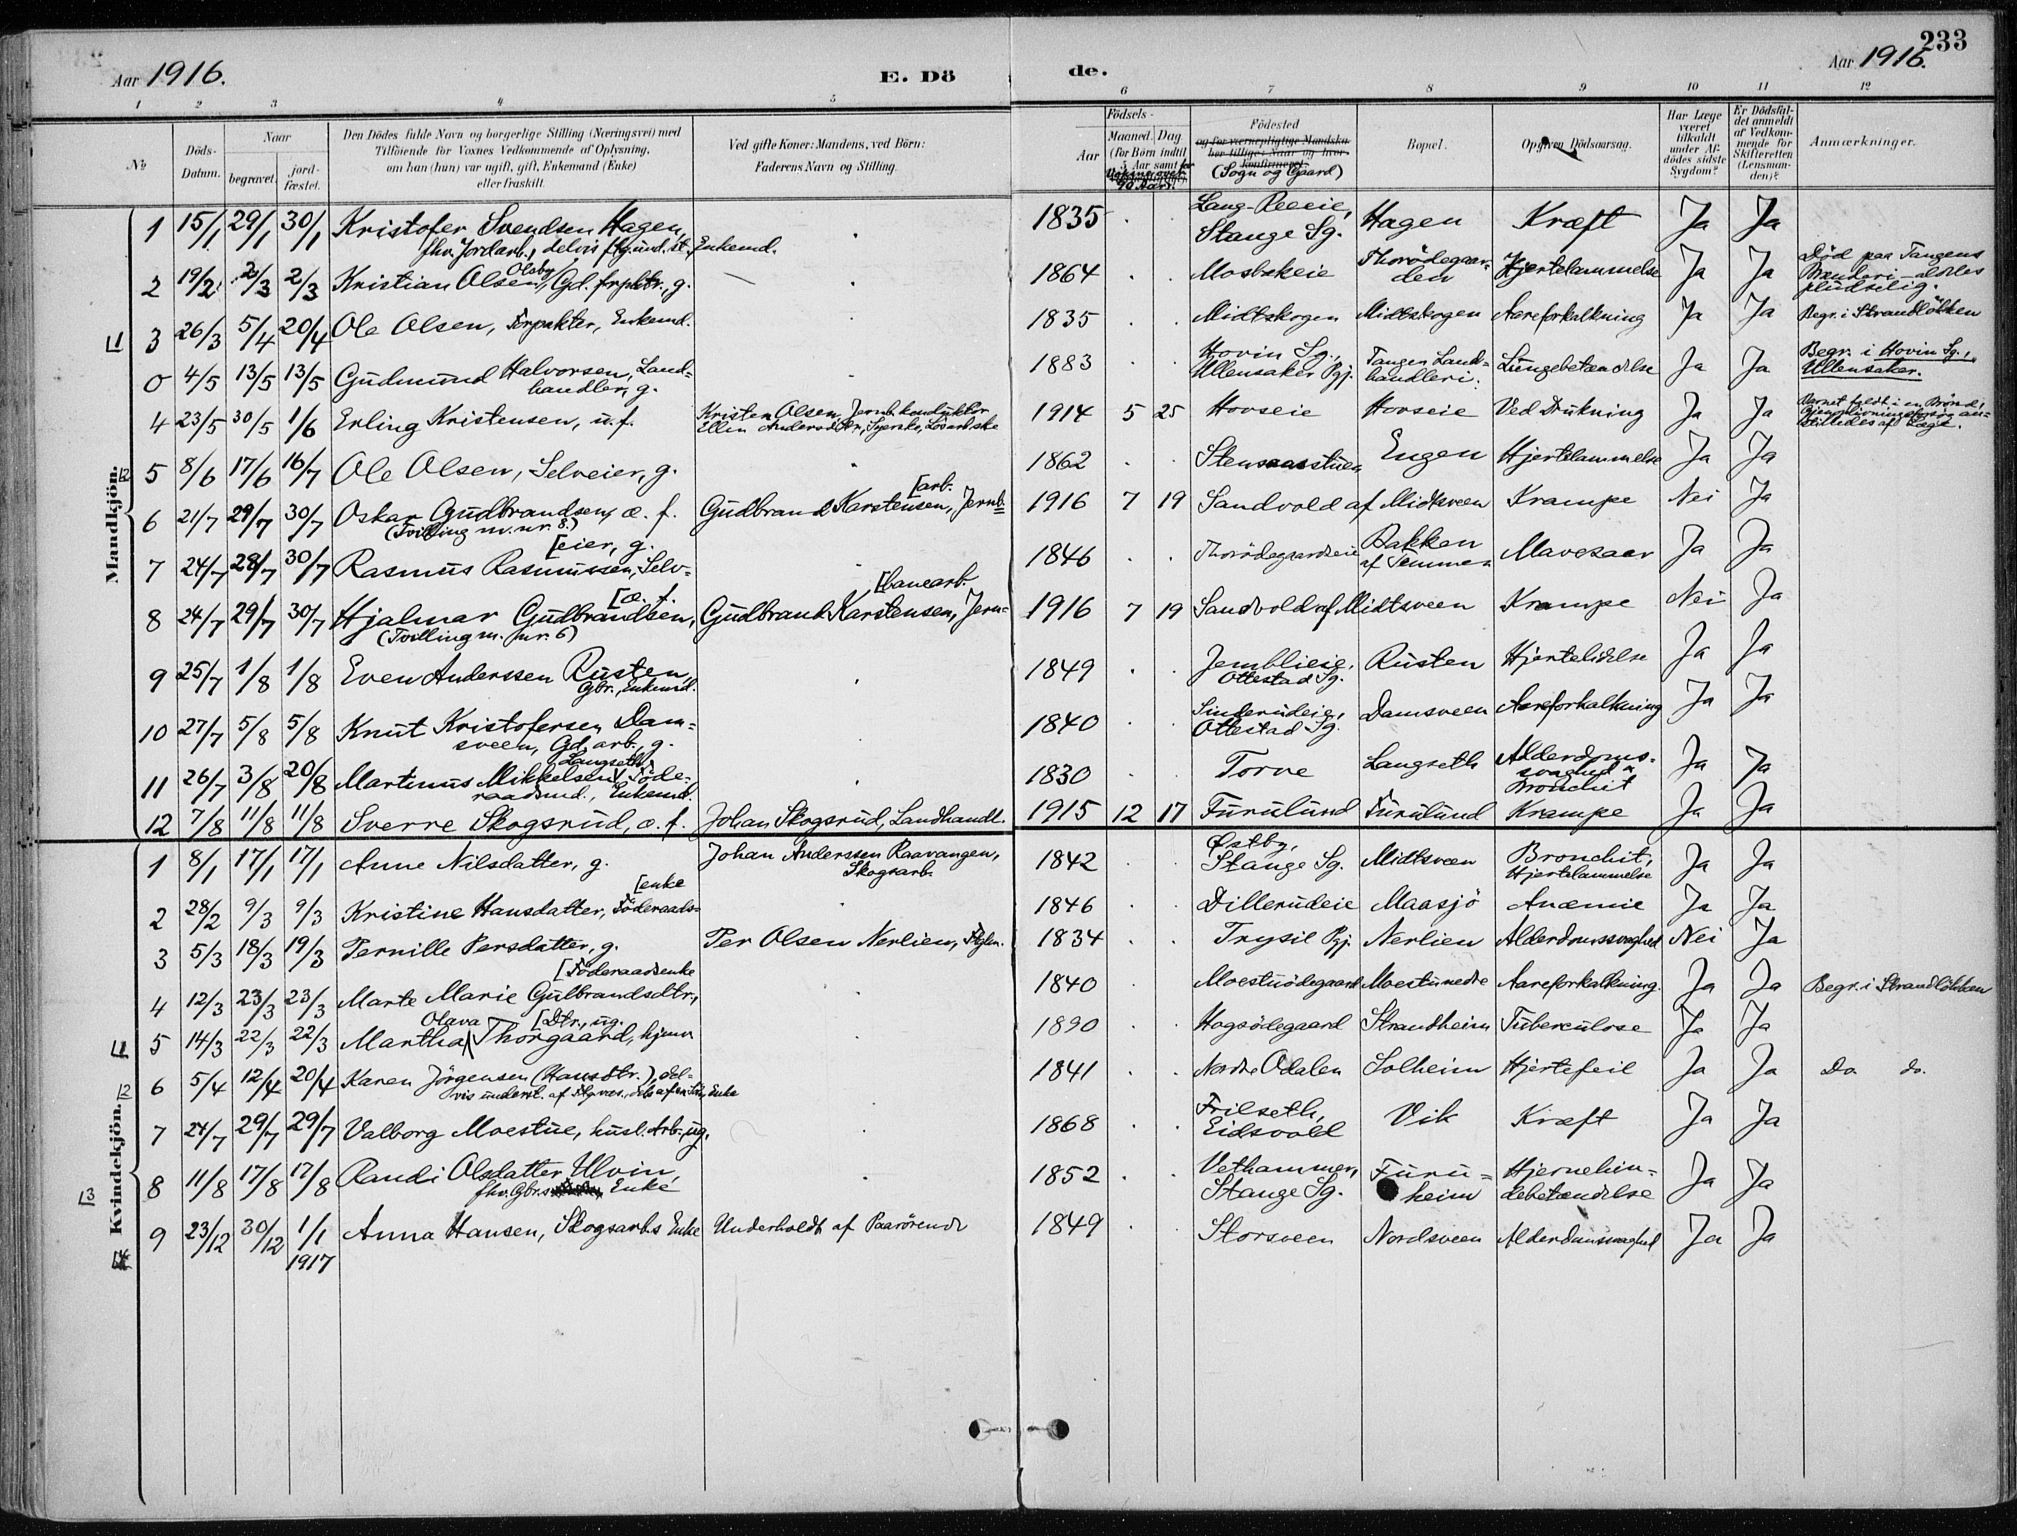 233
Aar 1916.
E. Dö de.
Aar 1916.
1 2 3 4 5 6 7 8 9 10 11 12
No
Döds-Datum.
Naar
begravet.
jord-fæstet.
Den Dödes fulde Navn og borgerlige Stilling (Næringsvei) med
Tilföiende for Voxnes Vedkommende af Oplysning,
om han (hun) var ugift, gift, Enkemand (Enke)
eller fraskilt.
Ved gifte Koner: Mandens, ved Börn:
Faderens Navn og Stilling.
Födsels-
Aar
Maaned. Dag
(for Börn indtil
5 Aar samt for
90 Aar).
Födested
og for værnepligtige Mandskaber tillige: Naar og hvor konfirmeret.
(Sogn og Gaard)
Bopæl.
Opgiven Dödsaarsag.
Har Læge været tilkaldt under Afdödes sidste Sygdom?
Er Dödsfaldet anmeldt af Vedkommende for Skifteretten (Lensmanden)?
Anmærkninger.
Mandkjön.
1 15/1 29/1 30/1 Kristofer Svendsen Hagen, 1835 Lang-Reeeie, Stange Sg. Hagen Kræft Ja Ja
fhv. Jordarb., delvis underst. Enkemd.
2 19/2 2/3 2/3 Kristian Olsen Olsby, Gd. frpktr., g. 1864 Mosbækeie Thorödegaarden Hjertelammelse Ja Ja Död paa Tangens Brænderi - aldeles pludselig.
3 26/3 5/4 20/4 Ole Olsen, Forpakter, Enkemd. 1835 Midtskogen Midtskogen Aareforkalkning Ja Ja Begr. i Strandlökken
0 4/5 13/5 13/5 Gudmund Halvorsen, Land=
handler, g. 1883 Hovin Sg., Ullensaker Pgj. Tangen Land=handleri. Lungebetændelse Ja Ja Begr. i Hovin Sg., Ullensaker.
4 23/5 30/5 1/6 Erling Kristensen, u.f. Kristen Olsen, Jernb. konduktör
Ellen Andersdtr., Syerske, 1914 5 25 Hovseie Hovseie Ved Drukning Ja Ja Barnet faldt i en Brönd,
af Læge.
5 8/6 17/6 16/7 Ole Olsen, Selveier, g. 1862 Stensaasstuen Engen Hjertelammelse Ja Ja
6 21/7 29/7 30/7 Oskar Gudbrandsen, æ. f. Gudbrand Karstensen, Jernb=[arb. 1916 7 19 Sandvold af Midtsveen Krampe Nei Ja
(Tvilling m. nr. 8.)
7 24/7 28/7 30/7 Rasmus Rasmussen, Selv=[eier, g. 1846 Thorödegaardseie Bakken af Temmen Mavesaar Ja Ja
8 24/7 29/7 30/7 Hjalmar Gudbrandsen, [æ. f. Gudbrand Karstensen, Jern=[banearb. 1916 7 19 Sandvold af Midtsveen Krampe Nei Ja
(Tvilling m. nr. 6)
9 25/7 1/8 1/8 Even Anderssen Rusten,
Gbr., Enkemd. 1849 Jemblieie, Ottestad Sg. Rusten Hjertelidelse Ja Ja
10 27/7 5/8 5/8 Knut Kristofersen Dam=
sveen, Gd. arb., g. 1840 Sinderudeie, Ottestad Sg. Damsveen Aareforkalkning Ja Ja
11 26/7 3/8 20/8 Martinus Mikkelsen Langseth, Föde=
raadsmd., Enkemd. 1830 Torve Langseth Alderdoms-svaghed Bronchit Ja Ja
12 7/8 11/8 11/8 Sverre Skogsrud, æ. f. Johan Skogsrud, Landhandl. 1915 12 17 Furulund Furulund Krampe Ja Ja
Kvindekjön.
1 8/1 17/1 17/1 Anne Nilsdatter, g. Johan Anderssen Raavangen,
Skogsarb. 1842 Østby, Stange Sg. Midtsveen Bronchit, Hjertelammelse Ja Ja
2 28/2 9/3 9/3 Kristine Hansdatter, Föderaads=[enke 1846 Dillerudeie Maasjö Anæmie Ja Ja
3 5/3 18/3 19/3 Pernille Persdatter, g. Per Olsen Nerlien, 1834 Trysil Pgj. Nerlien Alderdomssvaghed Nei Ja
4 12/3 23/3 23/3 Marte Marie Gulbrandsdtr., [Föderaadsenke 1840 Moestuödegaard Moestunedre Aareforkalkning. Ja Ja Begr. i Strandlökken
5 14/3 22/3 22/3 Martha Olava Thorgaard, hjemv. [Dtr., ug. 1890 Hagsödegaard Strandheim Tuberculose Ja Ja
6 5/4 12/4 20/4 Karen Jörgensen (Hansdtr.), del=
vis underst. af Enke 1841 Nordre Odalen Solheim Hjertefeil Ja Ja Do. do.
7 24/7 29/7 29/7 Valborg Moestue, husl. Arb., ug. 1868 Frilseth, Eidsvold Vik Kræft Ja Ja
8 11/8 17/8 17/8 Randi Olsdatter Ulvin,
fhv. Gbrs Enke 1852 Vethammer, Stange Sg. Furu=heim Hjernehin=debetændelse Ja Ja
9 23/12 30/12 1/1 1917 Anna Hansen, Skogsarb.s Enke Underholdt af Paarörende 1849 Storsveen Nordsveen Alderdomssvaghed Ja Ja